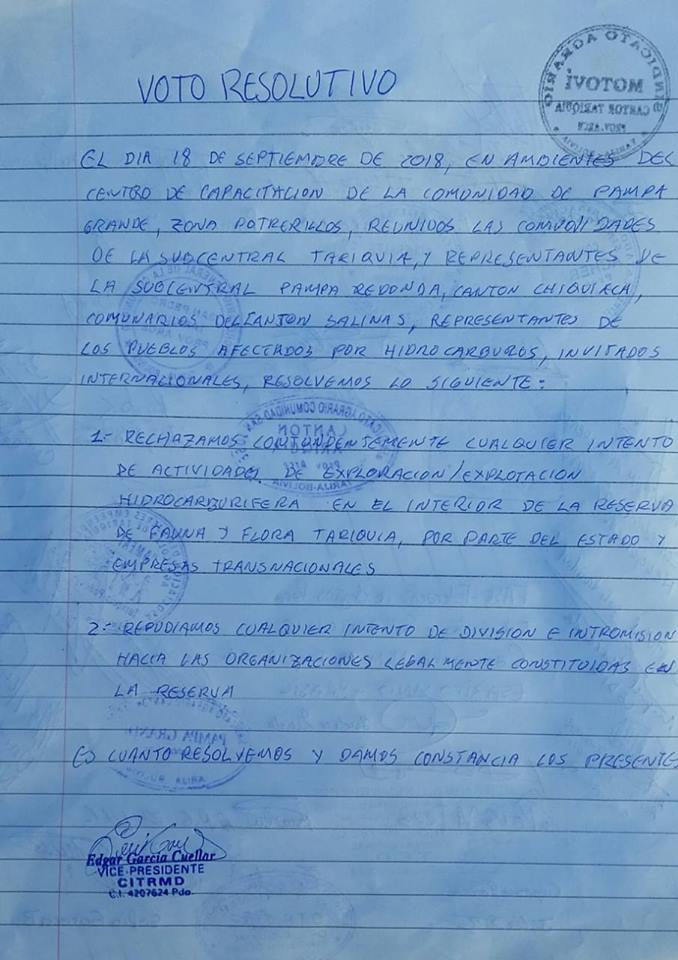 VOTO RESOLUTIVO
SINDICATO AGRARIO
MOTOVÍ
CANTON TARIQUIA
PROV. ARCE
EL DIA 18 DE SEPTIEMBRE DE 2018, EN AMBIENTES DEL
CENTRO DE CAPACITACION DE LA COMUNIDAD DE PAMPA
GRANDE, ZONA POTRERILLOS, REUNIDOS LAS COMUNIDADES
DE LA SUBCENTRAL TARIQUIA, Y REPRESENTANTES DE
LA SUBCENTRAL PAMPA REDONDA, CANTON CHIQUIACA,
COMUNARIOS DEL CANTON SALINAS, REPRESENTANTES DE
LOS PUEBLOS AFECTADOS POR HIDROCARBUROS, INVITADOS
INTERNACIONALES, RESOLVEMOS LO SIGUIENTE:
1.- RECHAZAMOS CONTUNDENTEMENTE CUALQUIER INTENTO
DE ACTIVIDADES DE EXPLORACION/EXPLOTACION
HIDROCARBURIFERA EN EL INTERIOR DE LA RESERVA
DE FAUNA Y FLORA TARIQUIA, POR PARTE DEL ESTADO Y
EMPRESAS TRANSNACIONALES
2.- REPUDIAMOS CUALQUIER INTENTO DE DIVISION E INTROMISION
HACIA LAS ORGANIZACIONES LEGALMENTE CONSTITUIDAS EN
LA RESERVA
ES CUANTO RESOLVEMOS Y DAMOS CONSTANCIA LOS PRESENTES
Edgar García Cuellar
VICE-PRESIDENTE
CITRMD
C.I. 4207624 Pdo.